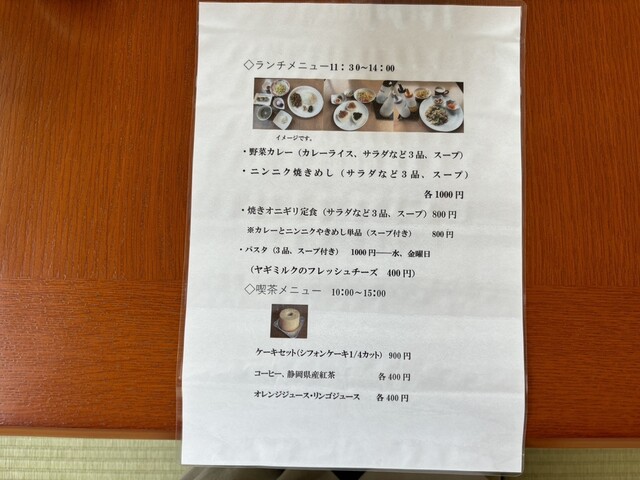 ◇ランチメニュー11：30～14：00
イメージです。
・野菜カレー（カレーライス、サラダなど３品、スープ）
・ニンニク焼きめし（サラダなど３品、スープ）
各1000円
・焼きオニギリ定食（サラダなど３品、スープ）800円
※カレーとニンニクやきめし単品（スープ付き） 800円
・パスタ（３品、スープ付き） 1000円――水、金曜日
（ヤギミルクのフレッシュチーズ 400円）
◇喫茶メニュー 10：00～15：00
ケーキセット（シフォンケーキ1/4カット） 900円
コーヒー、静岡県産紅茶 各400円
オレンジジュース・リンゴジュース 各400円